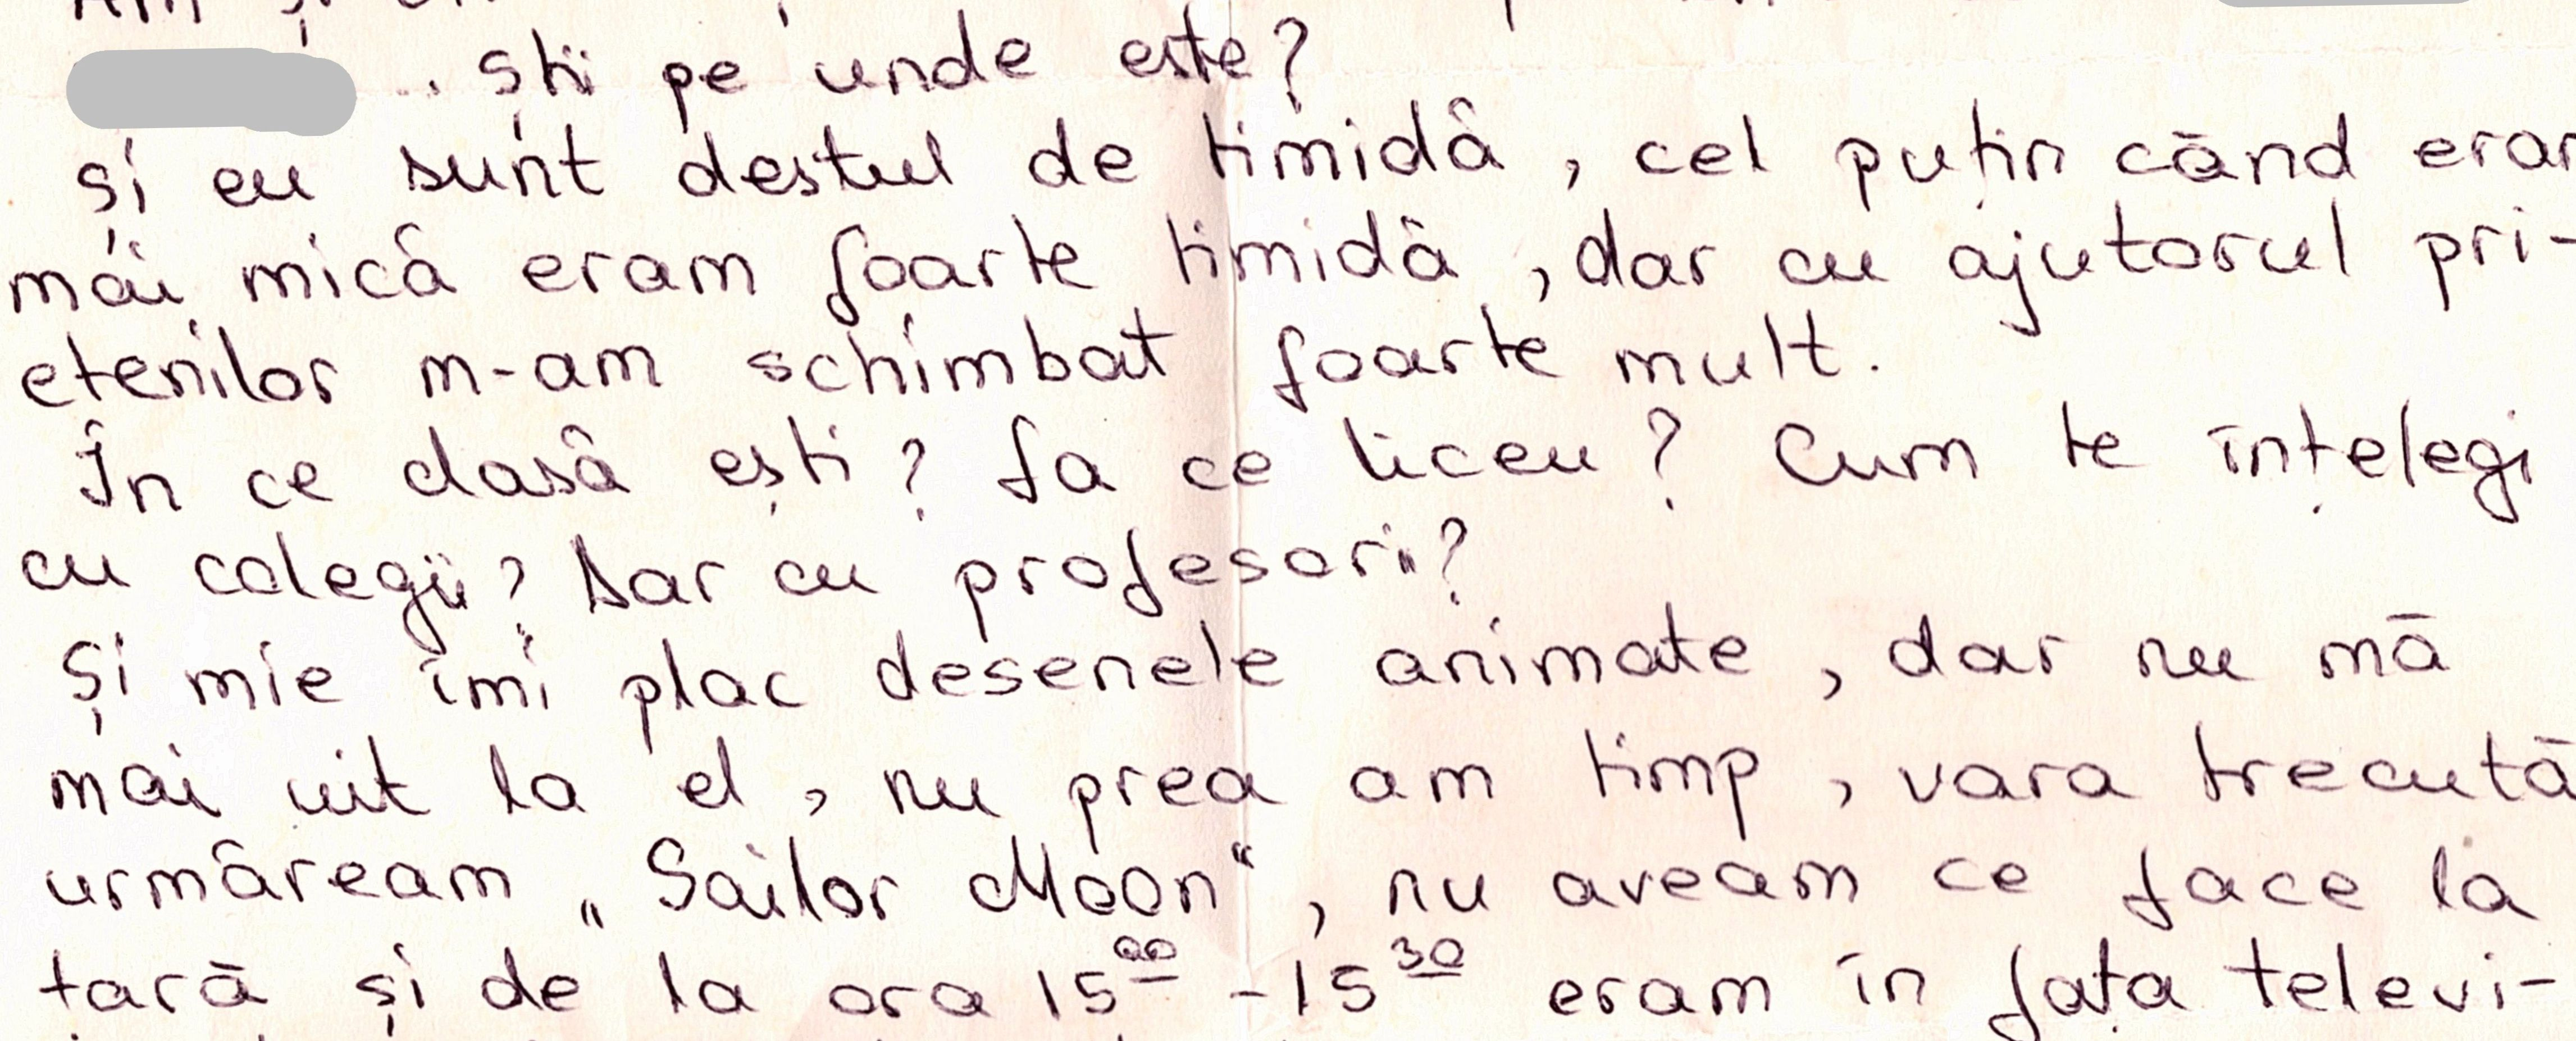 . Știi pe unde este?
și eu sunt destul de timidă, cel puțin când eram
mai mică eram foarte timidă, dar cu ajutorul pri-
etenilor m-am schimbat foarte mult.
În ce clasă ești? La ce liceu? Cum te înțelegi
cu colegii? Dar cu profesori?
Și mie îmi plac desenele animate, dar nu mă
mai uit la el, nu prea am timp, vara trecută
urmăream „Sailor Moon“, nu aveam ce face la
țară și de la ora 15⁰⁰ - 15³⁰ eram în fața televi-